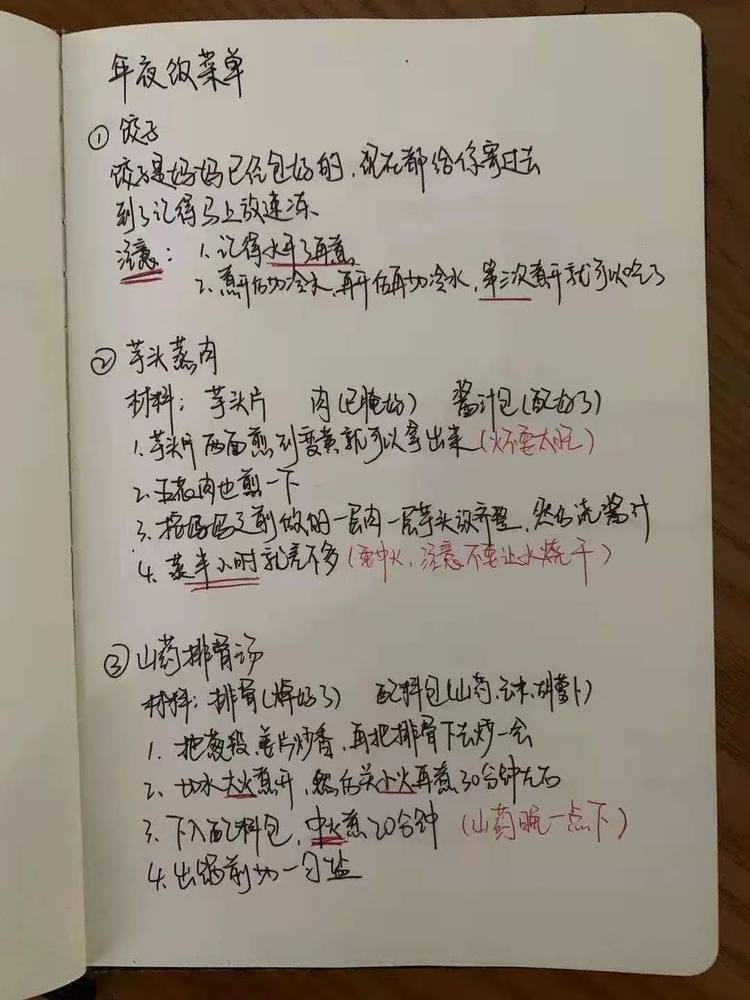 年夜饭菜单
① 饺子
饺子是妈妈已经包好的，现在都给你寄过去
到了记得马上放速冻。
注意： 1. 记得水开了再煮。
2. 煮开后加冷水，再开后再加冷水，第三次煮开就可以吃了
② 芋头蒸肉
材料： 芋头片 肉（已腌好） 酱汁包（配好了）
1. 芋头片两面煎到变黄就可以拿出来（火不要太旺）
2. 五花肉也煎一下
3. 按妈妈之前做的一层肉一层芋头放齐整，然后浇酱汁
4. 蒸半小时就差不多（要中火，注意不要让水烧干）
③ 山药排骨汤
材料：排骨（焯好了） 配料包（山药、玉米、胡萝卜）
1. 把葱段、姜片炒香，再把排骨下去炒一会
2. 加水大火煮开，然后关小火再煮30分钟左右
3. 下入配料包，中火煮20分钟 （山药晚一点下）
4. 出锅前加一勺盐